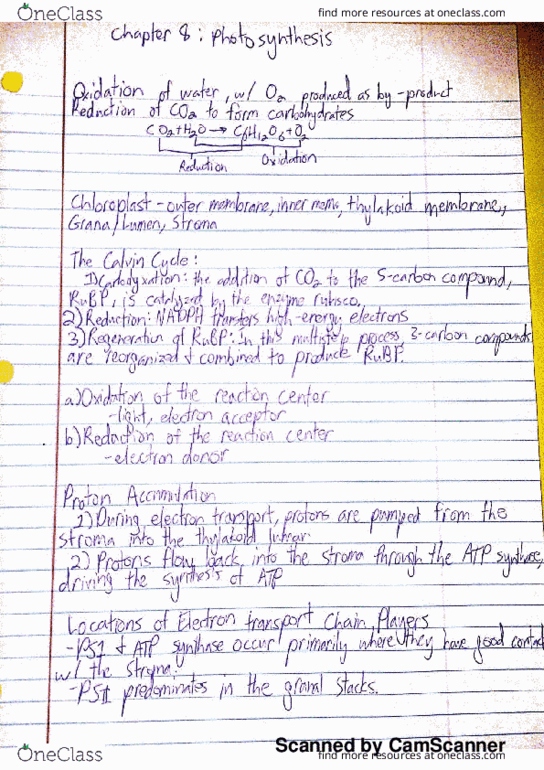 OneClass
find more resources at oneclass.com
Chapter 8: Photosynthesis
Oxidation of water, w/ O2 produced as by-product
Reduction of CO2 to form carbohydrates
CO2+H2O → C6H12O6+O2
Reduction Oxidation
Chloroplast - outer membrane, inner mem, thylakoid membrane,
Grana/Lumen, Stroma
The Calvin Cycle:
1) : the addition of CO2 to the 5-carbon compound,
RuBP, is catalyzed by the enzyme rubisco,
2) Reduction: NADPH transfers high-energy electrons
3) Regeneration of RuBP: In this multistep process, 3-carbon compounds
are reorganized & combined to produce RuBP.
a) Oxidation of the reaction center
-light, electron acceptor
b) Reduction of the reaction center
-electron donor
Proton Accumulation
1) During electron transport, protons are pumped from the
stroma into the thylakoid
2) Protons flow back into the stroma through the ATP synthase,
driving the synthesis of ATP
Locations of Electron transport Chain Players
-PS1 & ATP synthase occur primarily where they have good contact
w/ the stroma.
-PSII predominates in the granal stacks.
Scanned by CamScanner
OneClass
find more resources at oneclass.com